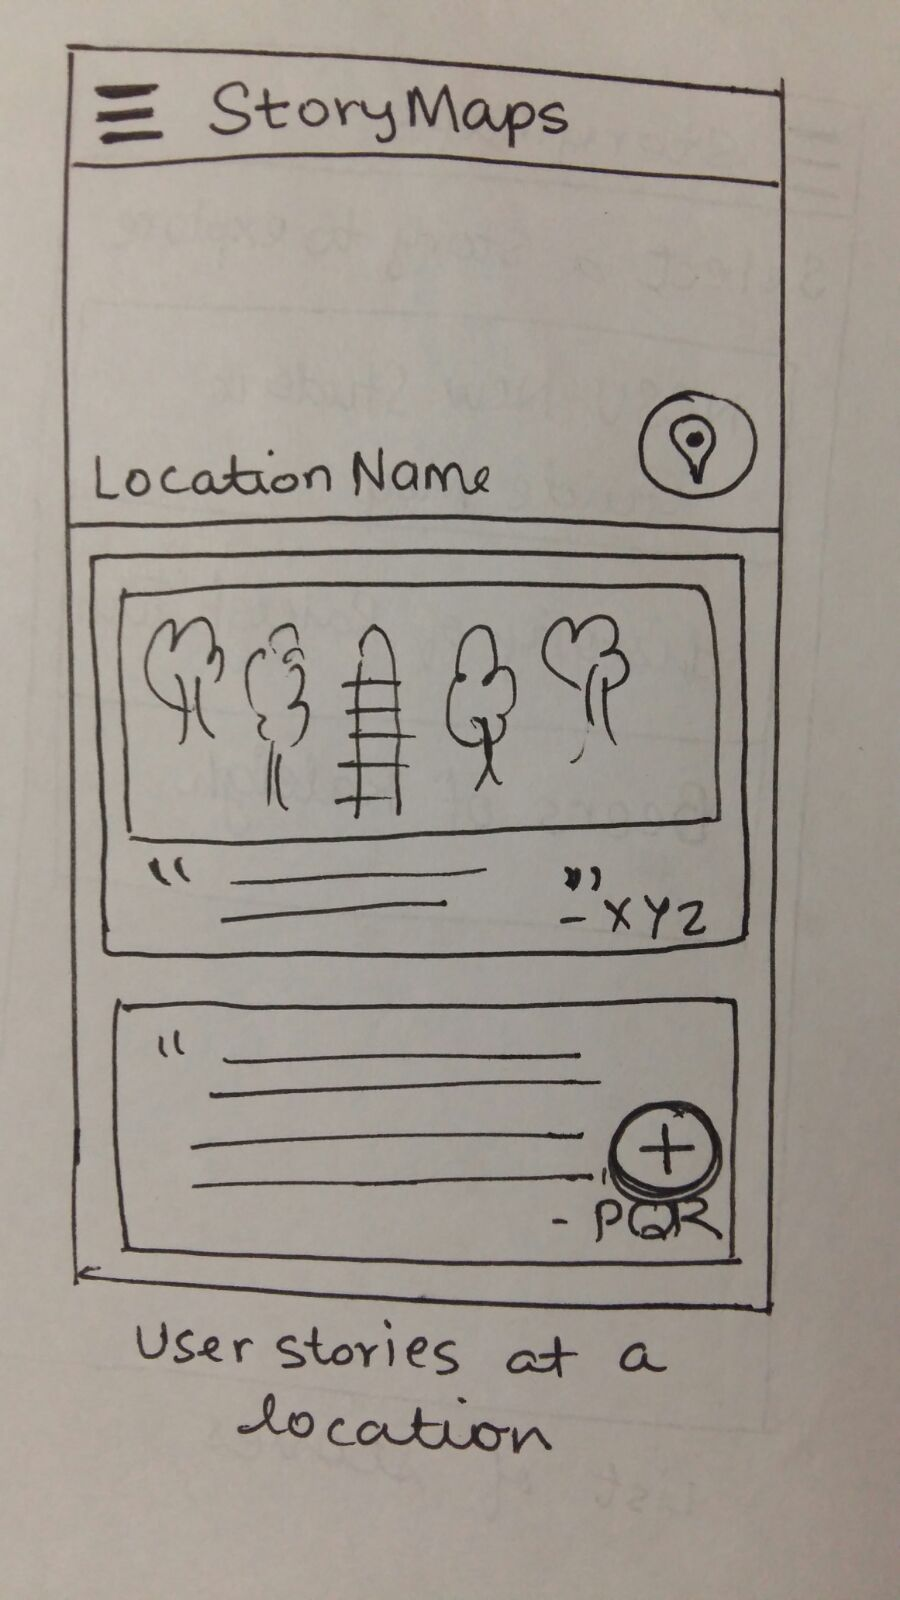 StoryMaps
Location Name
“ ”
- XYZ
“
- PQR
User stories at a
location